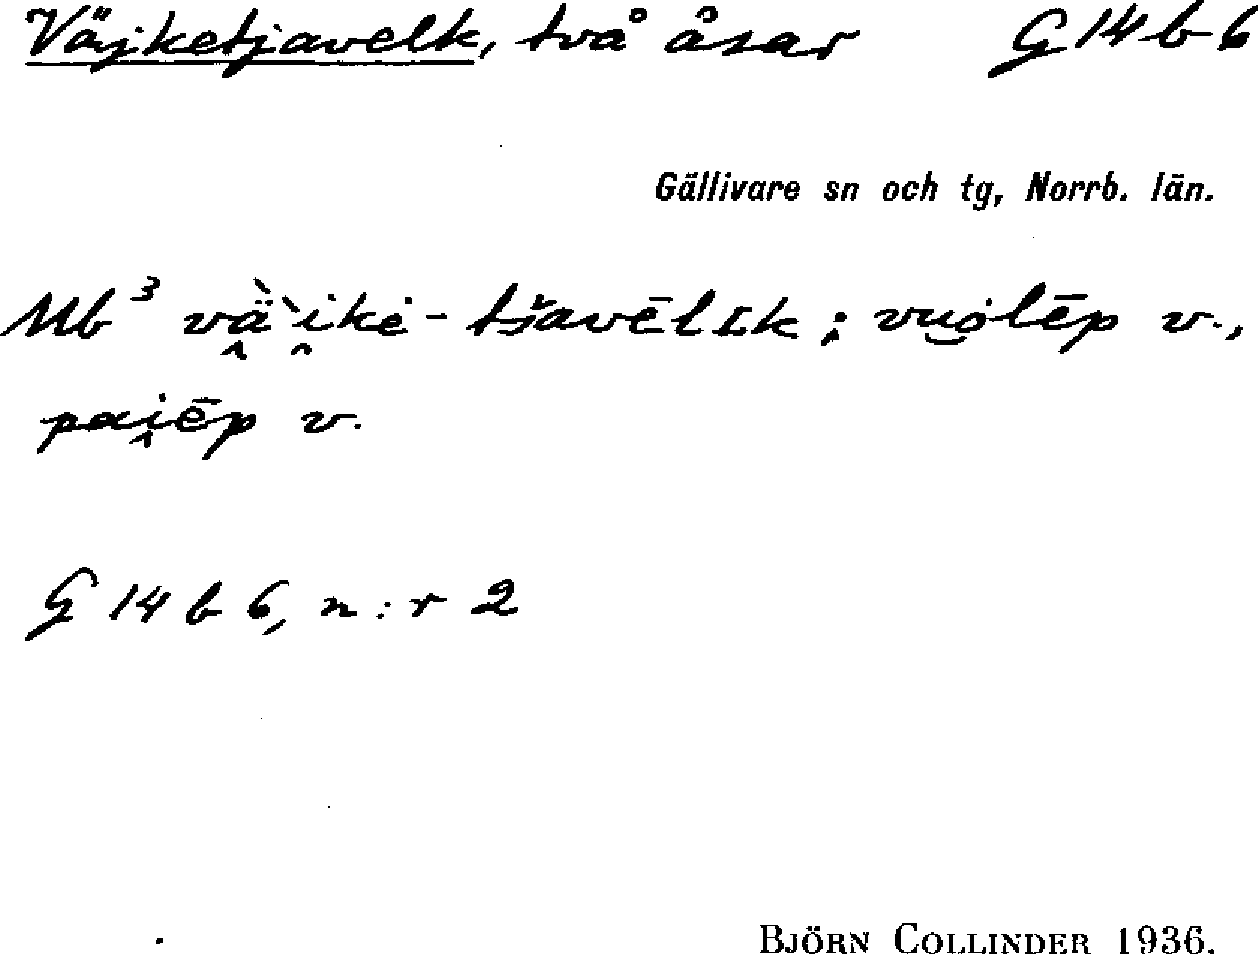 Väjketjavelk, två åsar G 14 b 6
Gällivare sn och tg, Norrb. län.
Mb³ vä̭̀ˋi̮ke̮-tšavēlk ; vuo̮lēp v.,
pai̭ēp v.
G 14 b 6, n:r 2
BJÖRN COLLINDER 1936.